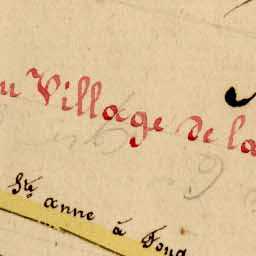 u Village de la
Ste anne à